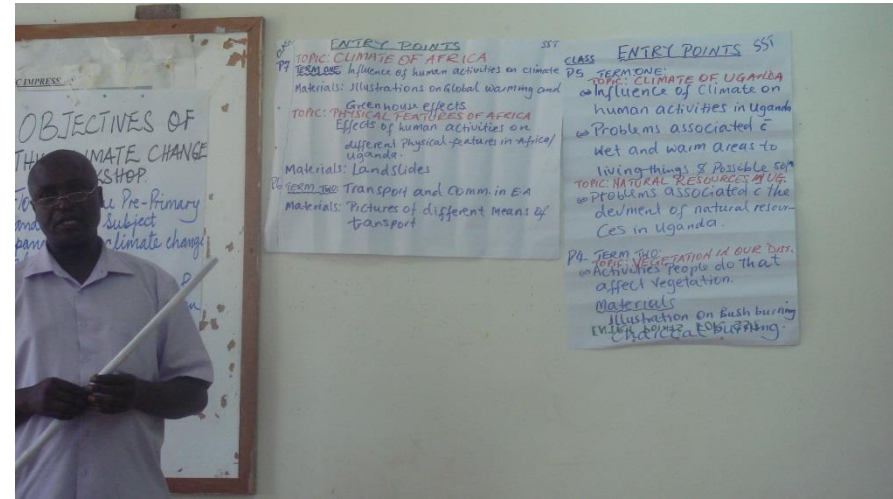 C IMPRESS
OBJECTIVES OF
CLIMATE CHANGE
KSHOP.
Pre-Primary
Subject
climate change
ENTRY POINTS SST
P7 TOPIC: CLIMATE OF AFRICA
TERM ONE: Influence of human activities on climate
Materials: Illustrations on Global warming and
Greenhouse effects
TOPIC: PHYSICAL FEATURES OF AFRICA
Effects of human activities on
different Physical features in Africa/
Uganda.
Materials: Landslides
P6 TERM TWO: Transport and Comm. in E.A
Materials: Pictures of different Means of
transport
CLASS ENTRY POINTS SST
P5 TERM ONE:
TOPIC: CLIMATE OF UGANDA
Influence of Climate on
human activities in Uganda
Problems associated c̄
wet and warm areas to
living things & Possible soln
TOPIC: NATURAL RESOURCES IN UG.
Problems associated c the
devment of natural resour-
ces in Uganda.
P4 TERM TWO:
TOPIC: VEGETATION IN OUR DIST.
Activities People do that
affect vegetation.
Materials
Illustration on Bush burning
Charcoal burning.